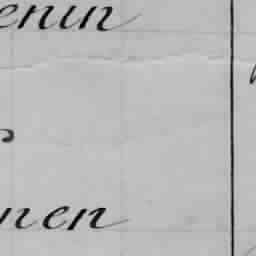 enin
nen